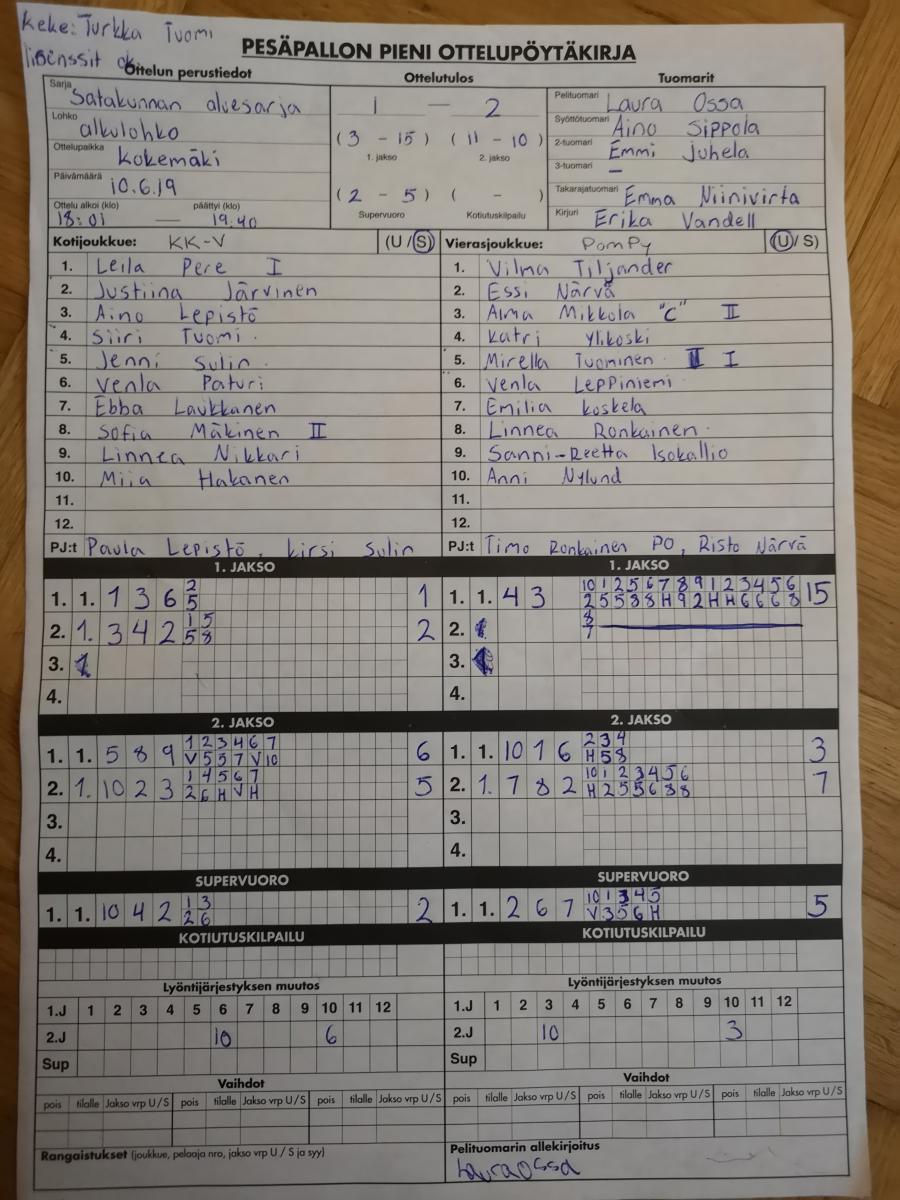 Keke: Turkka Tuomi
lisenssit ok.
PESÄPALLON PIENI OTTELUPÖYTÄKIRJA
Ottelun perustiedot Ottelutulos Tuomarit
Sarja Satakunnan aluesarja
Lohko alkulohko
Ottelupaikka Kokemäki
Päivämäärä 10.6.19
Ottelu alkoi (klo) päättyi (klo)
18:01 — 19.40
1 — 2
(3 - 15) (11 - 10)
1. jakso 2. jakso
(2 - 5) ( - )
Supervuoro Kotiutuskilpailu
Pelituomari Laura Ossa
Syöttötuomari Aino Sippola
2-tuomari Emmi Juhela
3-tuomari —
Takarajatuomari Emma Niinivirta
Kirjuri Erika Vandell
Kotijoukkue: KK-V (U/S)
1. Leila Pere I
2. Justiina Järvinen
3. Aino Lepistö
4. Siiri Tuomi
5. Jenni Sulin
6. Venla Paturi
7. Ebba Laukkanen
8. Sofia Mäkinen II
9. Linnea Nikkari
10. Miia Hakanen
11.
12.
PJ:t Paula Lepistö, Kirsi Sulin
Vierasjoukkue: PomPy (U/S)
1. Vilma Tiljander
2. Essi Närvä
3. Alma Mikkola "C" II
4. Katri Ylikoski
5. Mirella Tuominen I
6. Venla Leppiniemi
7. Emilia Koskela
8. Linnea Ronkainen
9. Sanni-Reetta Isokallio
10. Anni Nylund
11.
12.
PJ:t Timo Ronkainen PO, Risto Närvä
1. JAKSO
1. 1. 1 3 6 2 1
5
2. 1. 3 4 2 1 5 2
5 8
3.
4.
1. JAKSO
1. 1. 4 3 10 1 2 5 6 7 8 9 1 2 3 4 5 6 15
2 5 5 8 8 H 9 2 H H 6 6 6 8
2. 8
7
3.
4.
2. JAKSO
1. 1. 5 8 9 1 2 3 4 6 7 6
V 5 5 7 V 10
2. 1. 10 2 3 1 4 5 6 7 5
2 6 H V H
3.
4.
2. JAKSO
1. 1. 10 1 6 2 3 4 3
H 5 8
2. 1. 7 8 2 10 1 2 3 4 5 6 7
H 2 5 5 6 8 8
3.
4.
SUPERVUORO
1. 1. 10 4 2 1 3 2
2 6
SUPERVUORO
1. 1. 2 6 7 10 1 3 4 5 5
V 3 5 6 H
KOTIUTUSKILPAILU
KOTIUTUSKILPAILU
Lyöntijärjestyksen muutos
1.J 1 2 3 4 5 6 7 8 9 10 11 12
2.J 10 6
Sup
Lyöntijärjestyksen muutos
1.J 1 2 3 4 5 6 7 8 9 10 11 12
2.J 10 3
Sup
Vaihdot
pois tilalle Jakso vrp U/S pois tilalle Jakso vrp U/S pois tilalle Jakso vrp U/S
Vaihdot
pois tilalle Jakso vrp U/S pois tilalle Jakso vrp U/S pois tilalle Jakso vrp U/S
Rangaistukset (joukkue, pelaaja nro, jakso vrp U / S ja syy)
Pelituomarin allekirjoitus
Laura Ossa